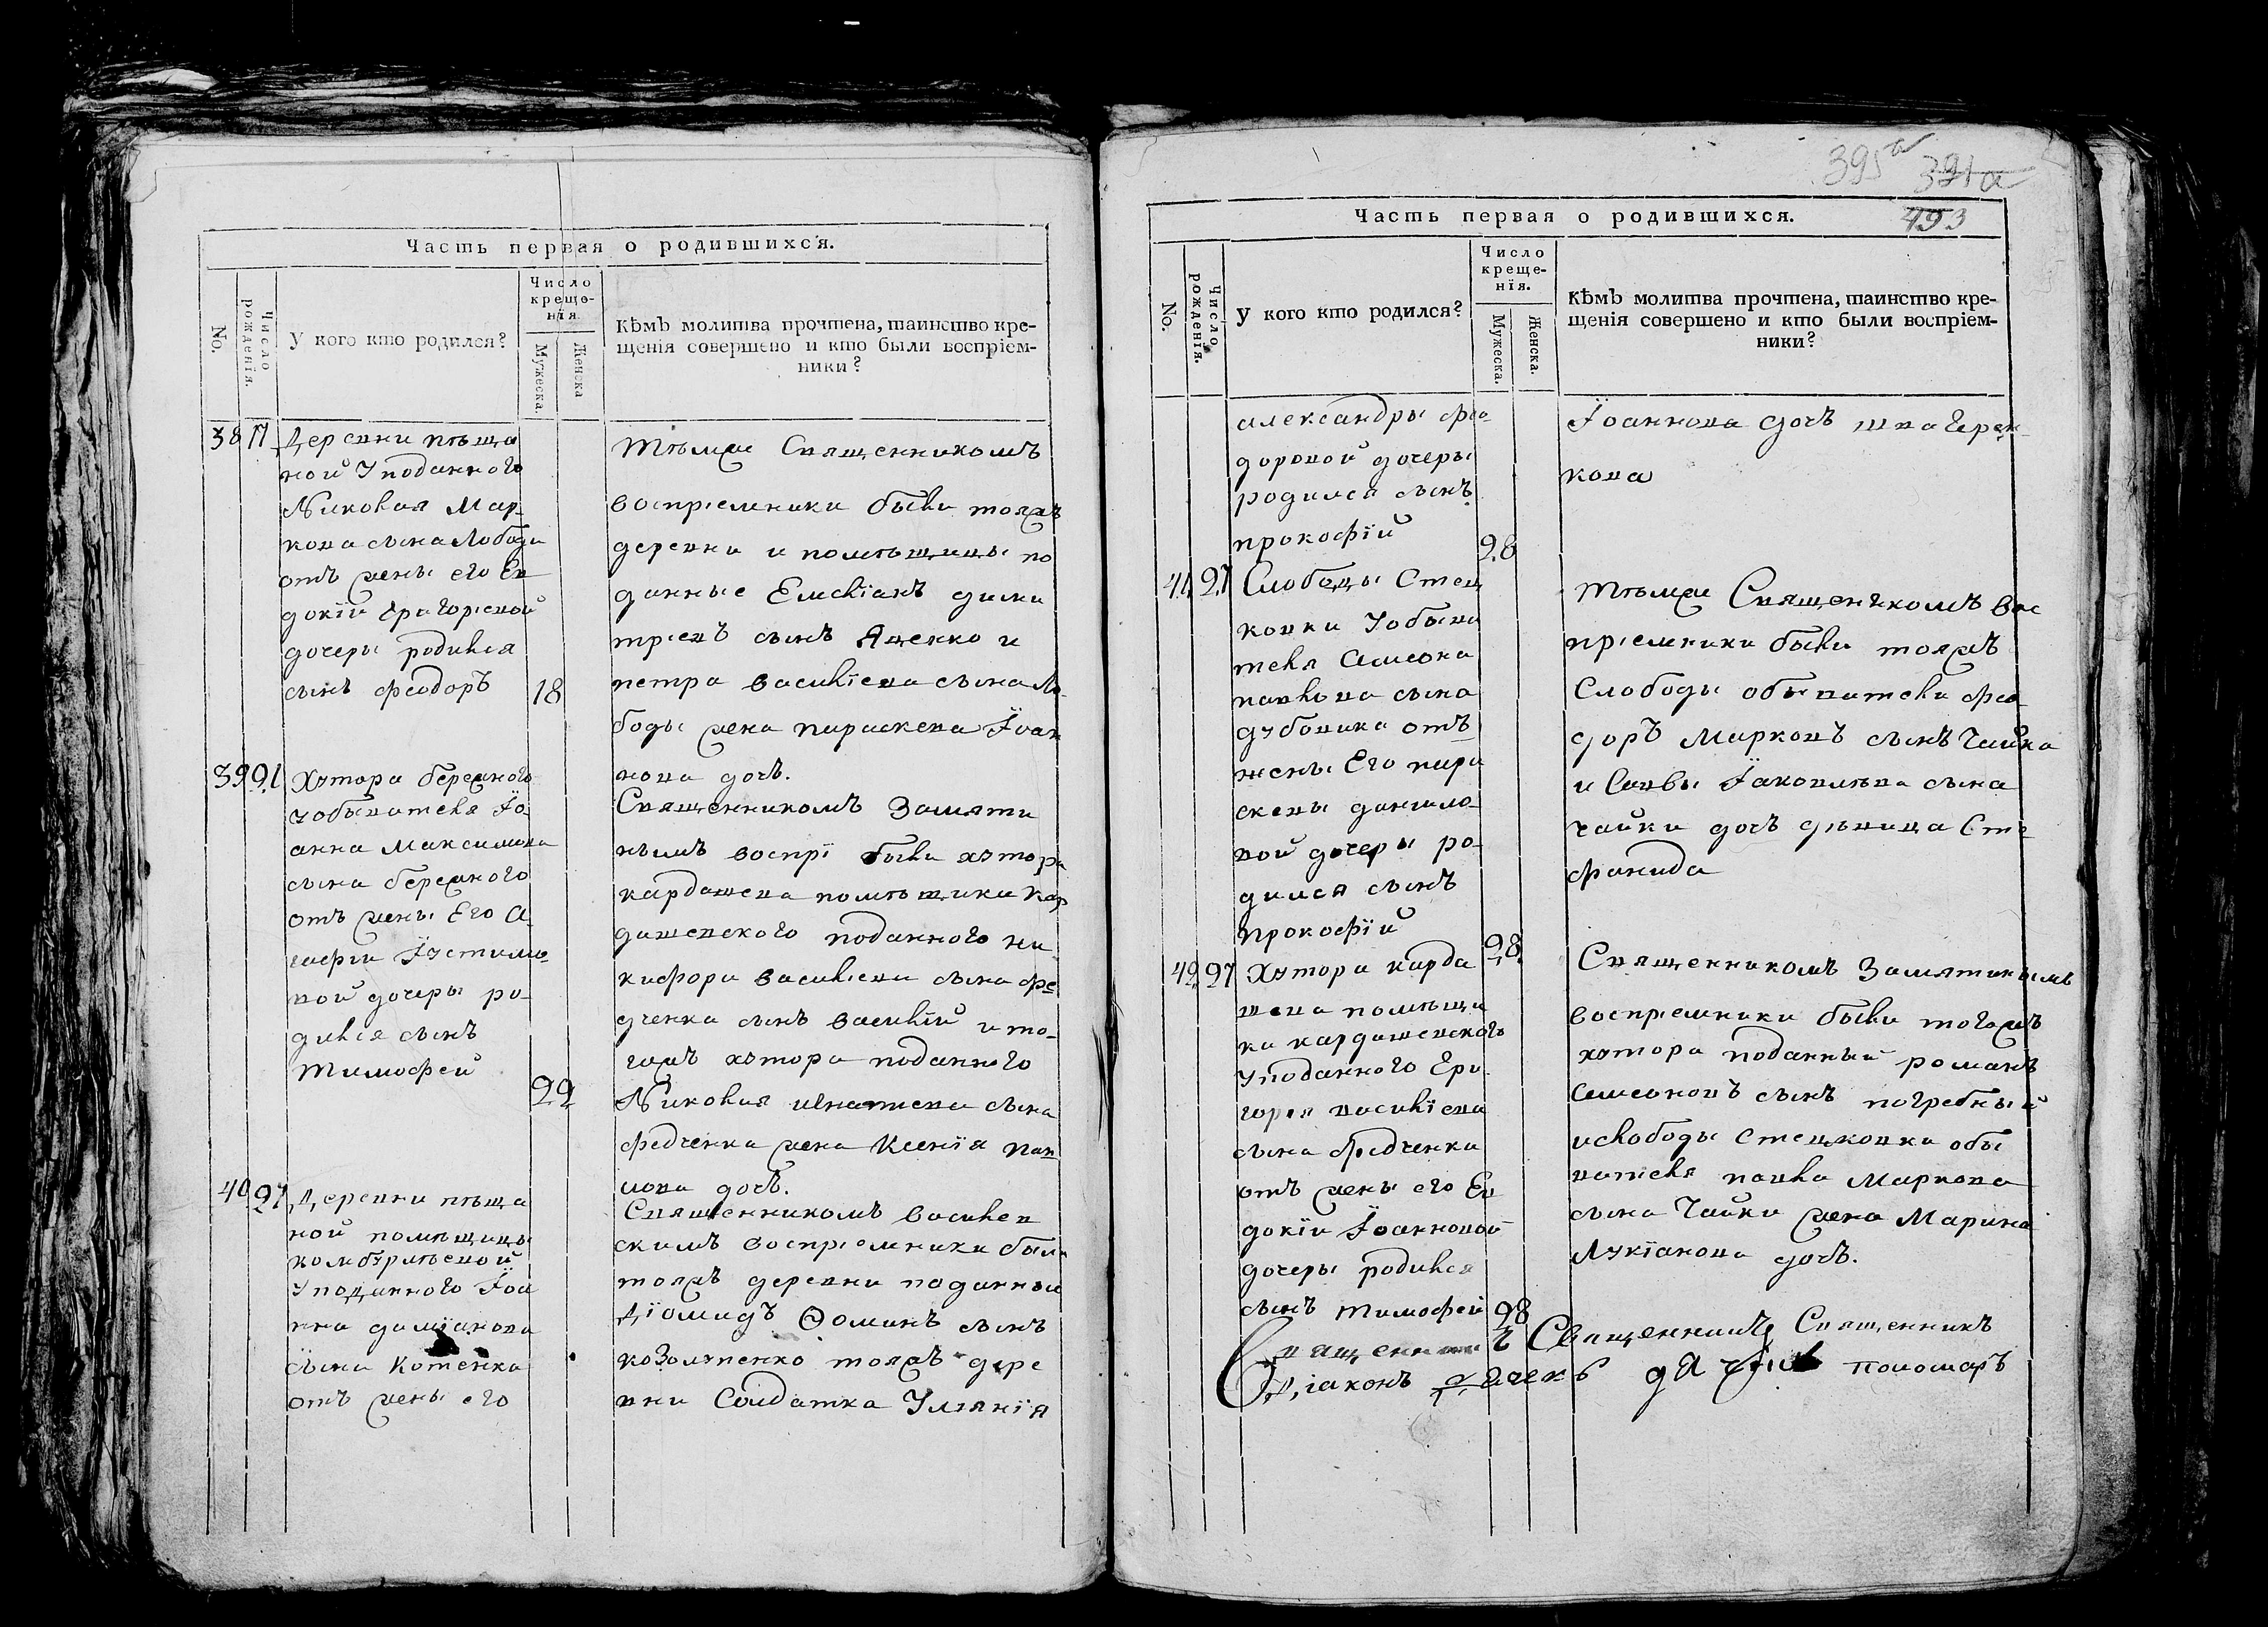 Часть первая о родившихся.
No.
Число рожденія.
У кого кто родился?
Число
креще-
нїя.
Мужеска.
Женска
Кѣмъ молитва прочтена, таинство кре-
щенія совершено и кто были воспріем-
ники?
38 17 Деревни пѣща
ной У поданного
Николая Мар-
кова сына Лободы
отъ жены его Ев
докїи Григорiевой
дочеры родился
сынъ феодоръ 18
Тѣмже Священникомъ
воспрiемники были тояжъ
деревни и помѣщицы по
данные Емелїанъ дими
трiевъ сынъ Яценко и
петра василїева сына Ло-
боды жена параскева Їоан
нова дочъ.
39 21 Хутора бережного
у обывателя Їо-
анна Максимова
сына бережного
отъ жены Его А-
гафiи Їустимо-
вой дочеры ро-
дился сынъ
Тимофей 22
Священникомъ Замяти
нымъ воспрї были хутора
кардашева помѣщика кар
дашевского поданного ни
кифора василїева сына фе
дченка сынъ василїй и то-
гожъ хутора поданного
Николая игнатiева сына
федченка жена Ксенїя пав
лова дочъ.
40 27 Деревни пѣща
ной помѣщицы
У поданного Їоа
нна дамїанова
сына Котенка
отъ жены его
Священникомъ василев
скимъ воспрiемники были
тояжъ деревни поданный
Дїомидъ Ѳоминъ сынъ
тояжъ дере
вни Солдатка Улiянїя
395а
391а
493
Часть первая о родившихся.
No.
Число рожденія.
У кого кто родился?
Число
креще-
нїя.
Мужеска.
Женска.
Кѣмъ молитва прочтена, таинство кре-
щенія совершено и кто были воспріем-
ники?
александры фео-
доровой дочеры
родился сынъ
прокофїй 28
Їоаннова дочъ шпагерен-
кова
41 27 Слободы Стец
ковки У обыва
теля Симеона
павлова сына
дубовика отъ
жены Его пара
скевы данило-
вой дочеры ро-
дился сынъ
прокофїй 28.
Тѣмже Священикомъ вос
прiемники были тояжъ
Слободы обыватели фео
доръ Марковъ сынъ Чайка
и Саввы Їаковлѣва сына
чайки дочъ дѣвица Сте
фанида
42 27 Хутора карда
шева помѣщи
ка кардашевского
У поданного Гри-
горiя василїева
сына федченка
отъ жены его Ев
докїи Їоанновой
дочеры родился
сынъ тимофей 28
Священникомъ Замятинымъ
воспрiемники были тогожъ
хутора поданный романъ
Симеоновъ сынъ погребный
и слободы Стецковки обы
вателя павла Маркова
сына Чайки жена Марина
Лукїанова дочъ.
Священникъ Священникъ
Дїаконъ дячекъ пономаръ